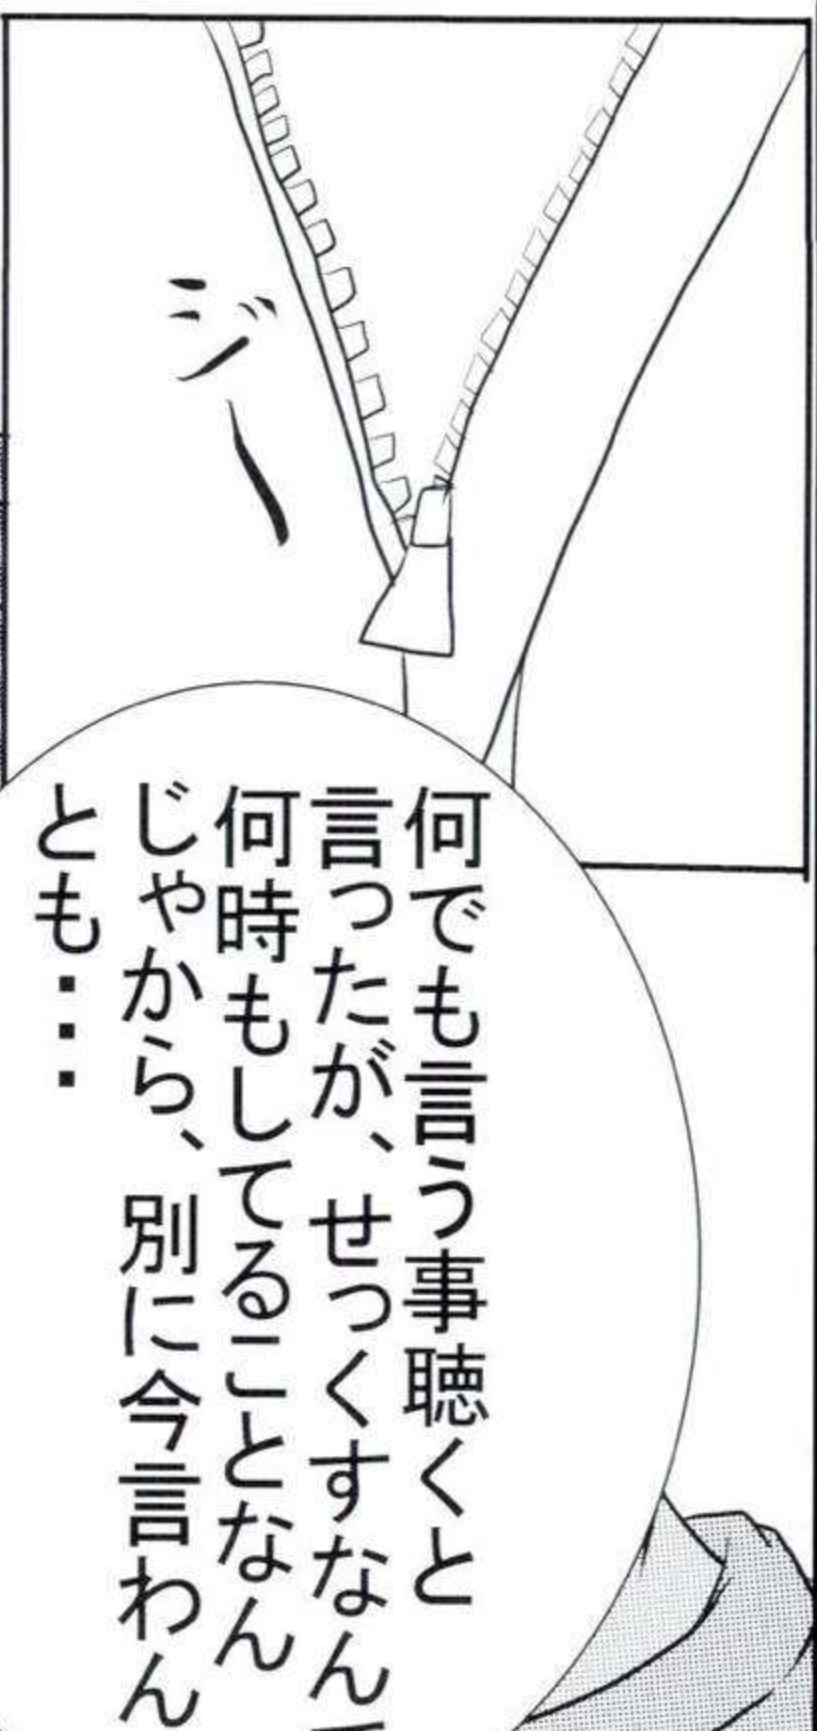 ジー
何でも言う事聴くと
言ったが、せっくすなんて
何時もしてることなん
じゃから、別に今言わん
とも・・・